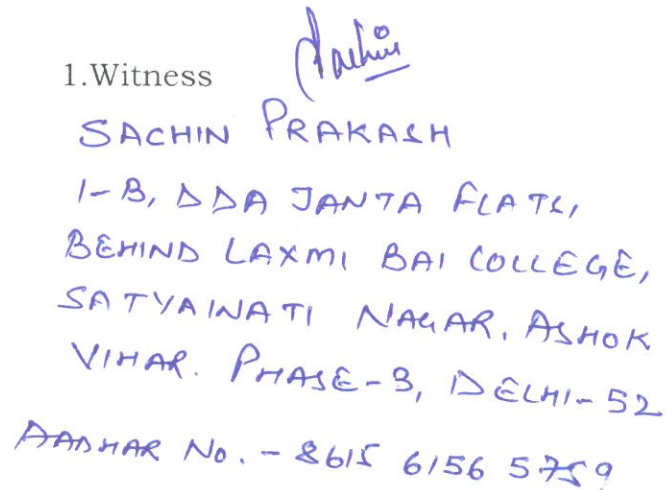 Sachin
1.Witness
SACHIN PRAKASH
1-B, DDA JANTA FLATS,
BEHIND LAXMI BAI COLLEGE,
SATYAWATI NAGAR, ASHOK
VIHAR. PHASE-3, DELHI-52
AADHAR NO. - 8615 6156 5759